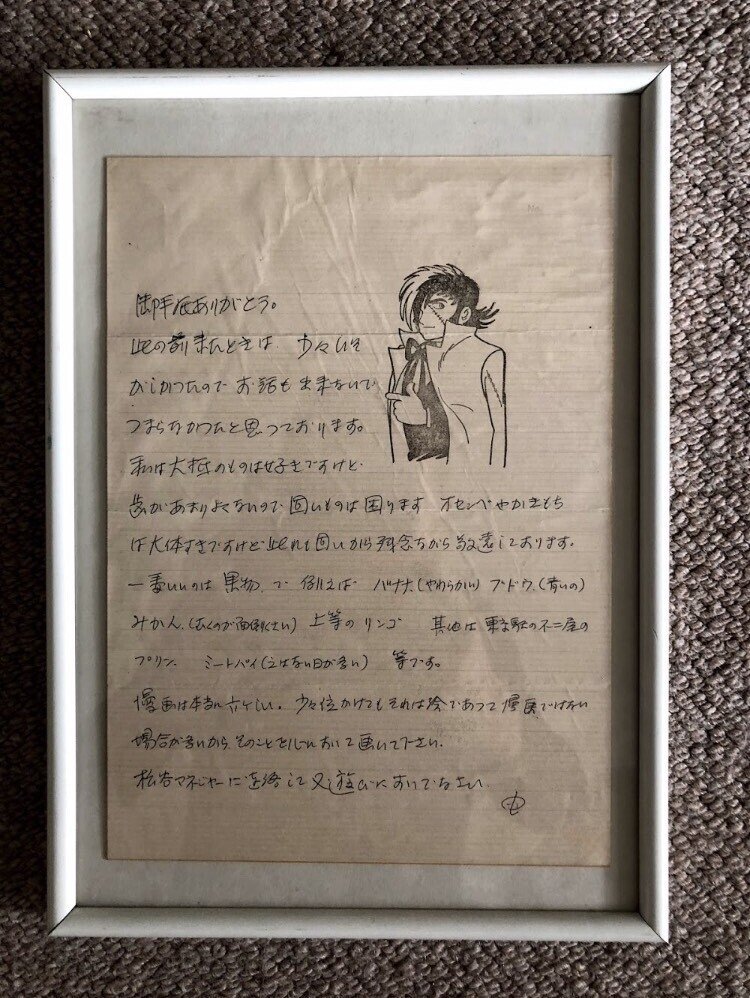 御手紙ありがとう。
此の前来たときは、少々いそ
がしかつたので お話も出来ないで
つまらなかつたと思つております。
私は大抵のものは好きですけど
歯があまりよくないので固いものは困ります オセンベやかきもち
は大体すきですけど此れも固いから残念ながら敬遠しております。
一番いいのは 果物、で 例えば バナナ、(やわらかい) ブドウ、(青いの)
みかん、(むくのが面倒くさい) 上等の リンゴ 其他は 東京駅の不二屋の
プリン、 ミートパイ( はない日が多い) 等です。
漫画は本当に六ケしい。少々泣かけてもそれは絵であつて漫画ではない
場合が多いから そのことを心において画いて下さい。
松谷マネジャーに連絡して又遊びにおいでなさい。